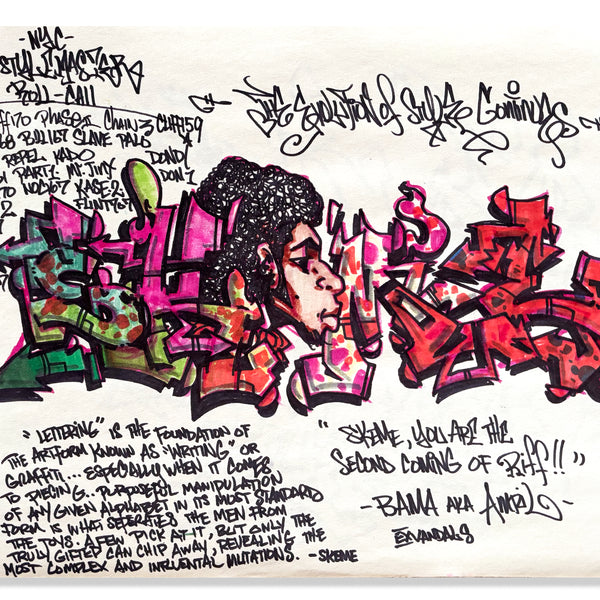 -NYC-
STYLEMASTER
ROLL-CALL
PHASE II CHAIN 3 CLIFF 159
BILL 167 SLAVE PALO
REPEL KADO DONDI
PART 1 MR. JINX DON 1
NOC 167 KASE 2
FLINT 707
THE EVOLUTION OF STYLE CONTINUES
"LETTERING" IS THE FOUNDATION OF
THE ARTFORM KNOWN AS "WRITING" OR
GRAFFITI... ESPECIALLY WHEN IT COMES
TO PIECING... PURPOSEFUL MANIPULATION
OF ANY GIVEN ALPHABET IN ITS MOST STANDARD
FORM IS WHAT SEPERATES THE MEN FROM
THE TOYS. A FEW "PICK AT IT, BUT ONLY THE
TRULY GIFTED CAN CHIP AWAY, REVEALING THE
MOST COMPLEX AND INFLUENTAL MUTATIONS. -SKEME
"SKEME, YOU ARE THE
SECOND COMING OF RIFF!!"
-BAMA AKA AMRL-
EXVANDALS